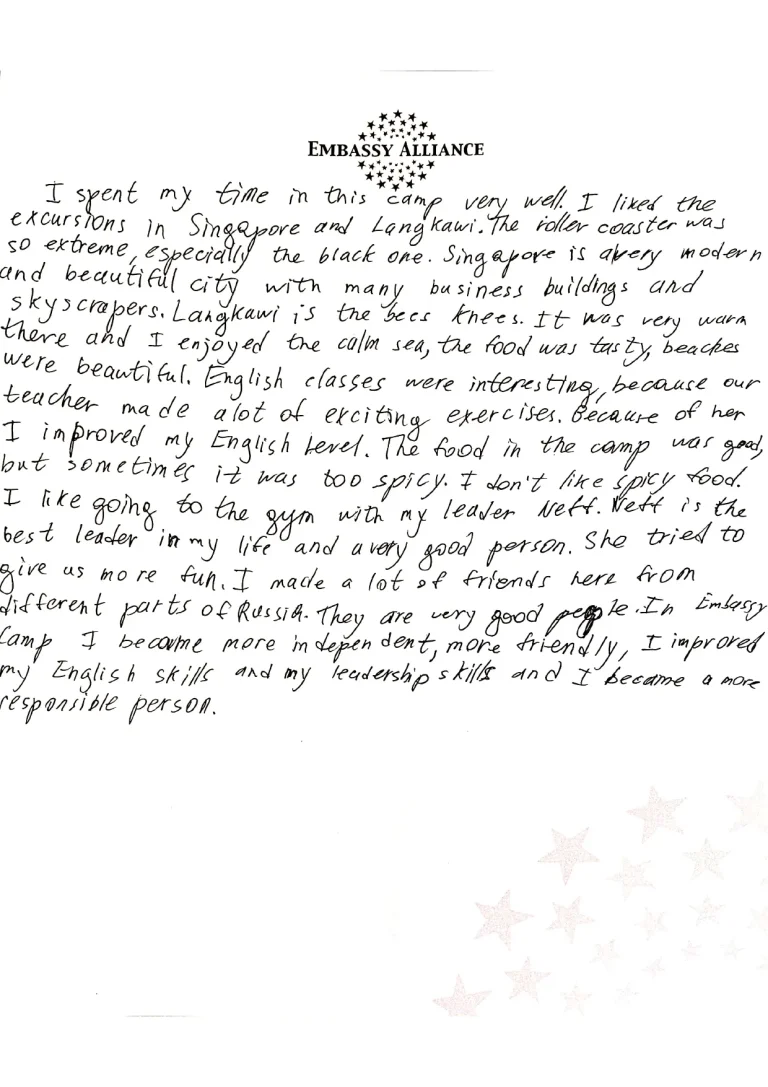 EMBASSY ALLIANCE
I spent my time in this camp very well. I liked the
excursions in Singapore and Langkawi. The roller coaster was
so extreme, especially the black one. Singapore is a very modern
and beautiful city with many business buildings and
skyscrapers. Langkawi is the bees knees. It was very warm
there and I enjoyed the calm sea, the food was tasty, beaches
were beautiful. English classes were interesting, because our
teacher made alot of exciting exercises. Because of her
I improved my English level. The food in the camp was good,
but sometimes it was too spicy. I don't like spicy food.
I like going to the gym with my leader Neff. Neff is the
best leader in my life and a very good person. She tried to
give us more fun. I made a lot of friends here from
different parts of Russia. They are very good people. In Embassy
Camp I became more independent, more friendly, I improved
my English skills and my leadership skills and I became a more
responsible person.